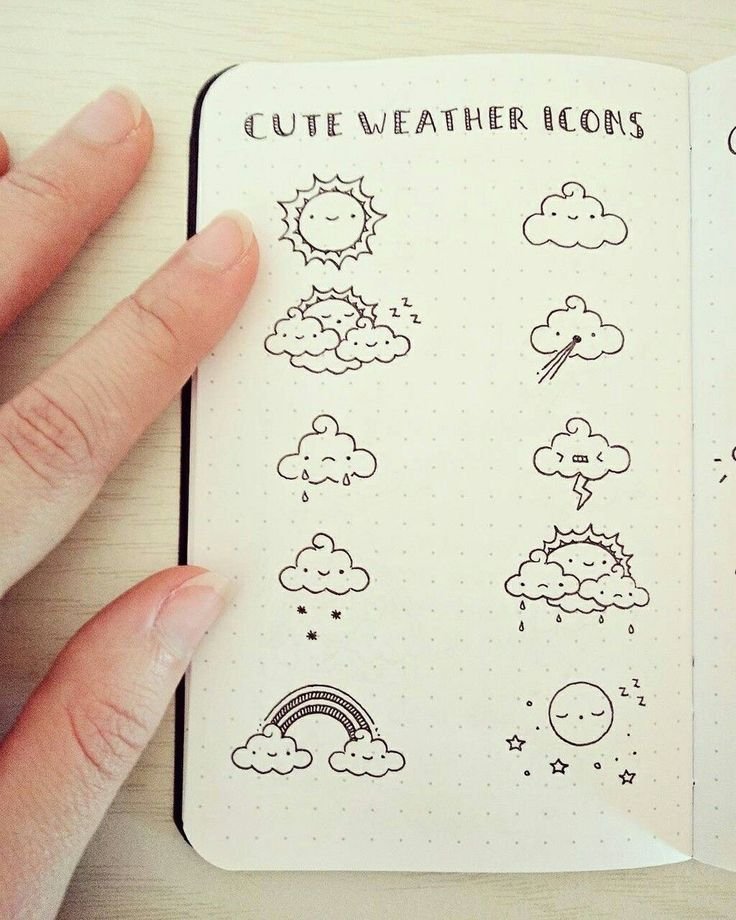 CUTE WEATHER ICONS
z z z
z z z